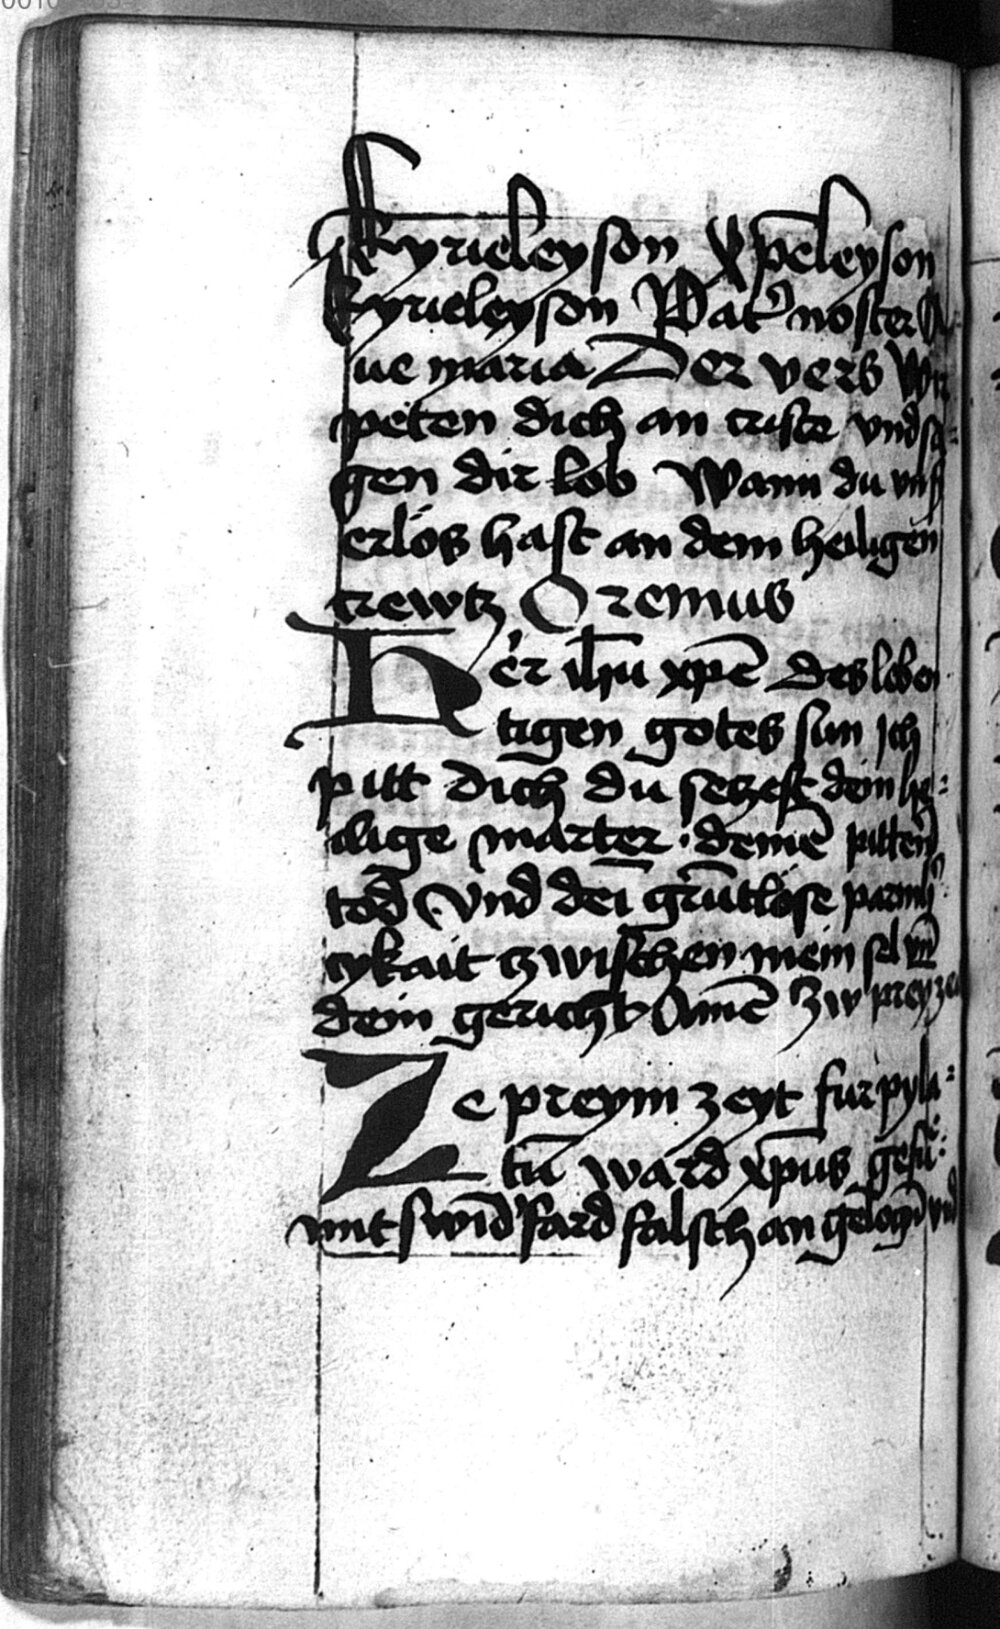 Kyrieleyson Xp̄eleyson
Kyrieleyson Pat̾ noster A
ue maria Der vers Wir
peten dich an criste vnd sa⸗
gen dir lob Wann du vns
erlös hast an dem heiligen
crewtz Oremus
Her ih̄u xp̄e des leben
tigen gotes sun Ich
pitt dich du seczest dein he⸗
ilige marter · deinē pittern
tod Vnd dei grūtlose parmh̾
cykait tzwischen mein sel vn̄
dein gericht Amē Zw preyzeit
Ze preym zeyt fur pyla⸗
tū ward xp̄us gefu⸗
mit swid fard falsch an gelogn̄ vnd